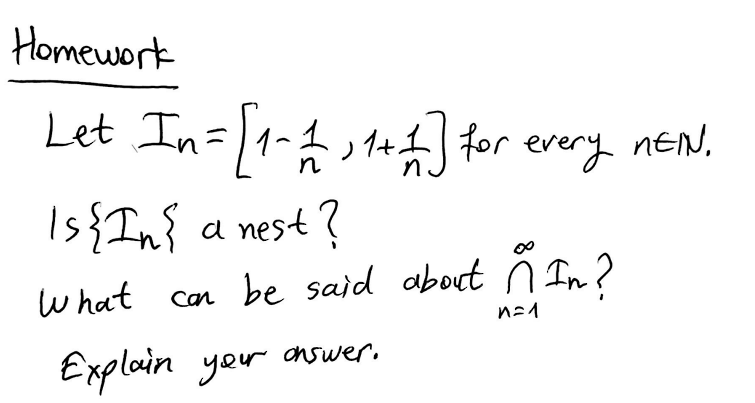 Homework
Let Iₙ = [1 - 1/n, 1 + 1/n] for every n∈ℕ.
Is {Iₙ} a nest?
What can be said about ∞⋂n=1 Iₙ?
Explain your answer.